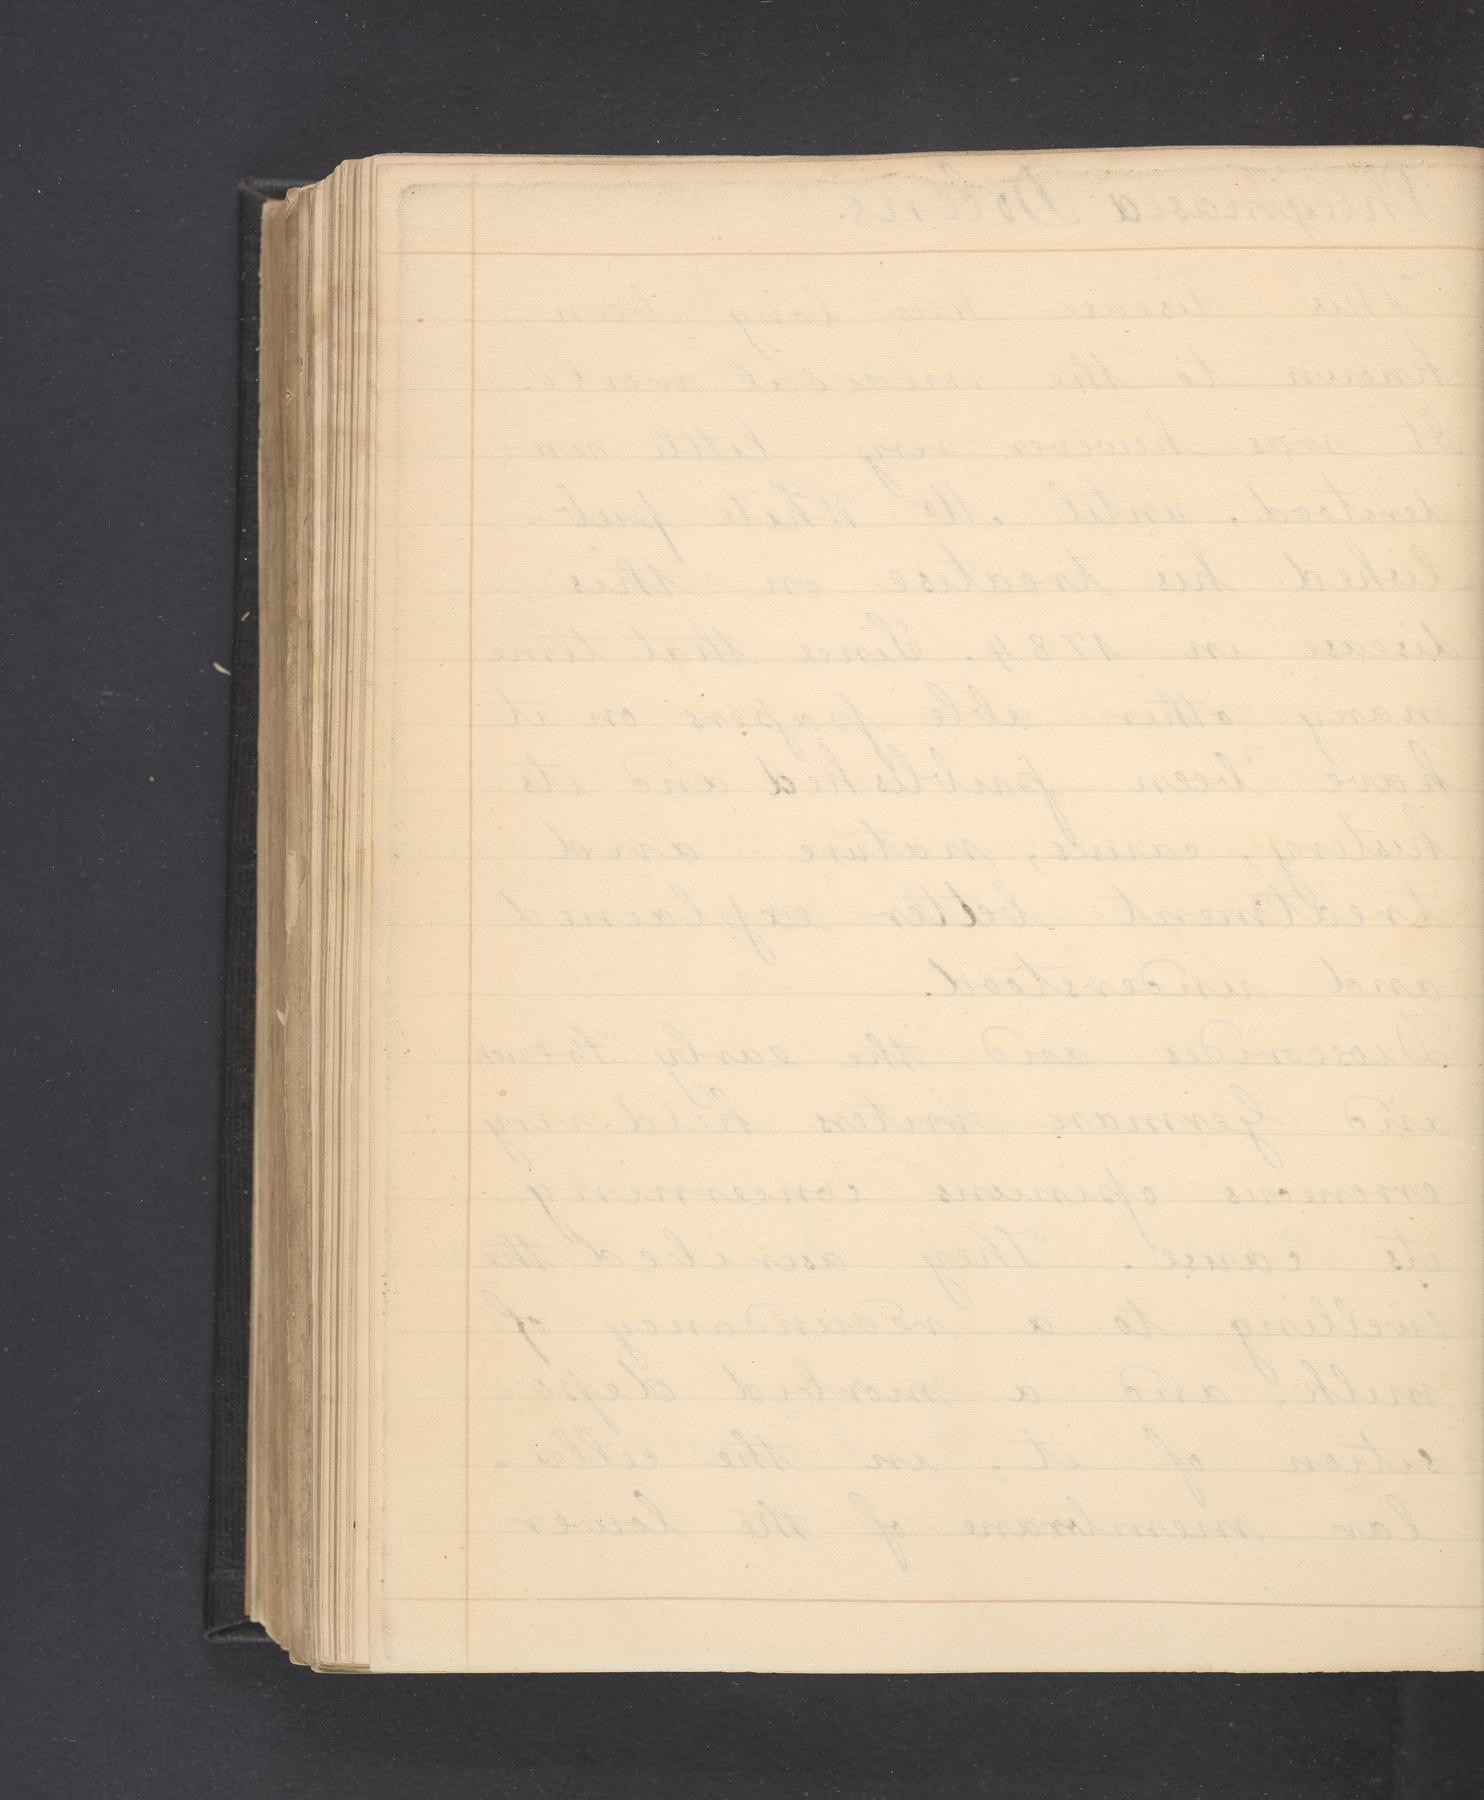 Phlegmasia Dolens.
This disease has long been
known to the medical world.
It was however very little un-
derstood, until Mr White pub-
lished his treatise on this
disease in 1784. Since that time
many other able papers on it
have been published and its
history, causes, nature and
treatment better explained
and understood.
Dioscorides and the early French
and German writers held very
erroneous opinions concerning
its cause. They ascribed the
swelling to a redundancy of
milk, and a morbid depo
sition of it, in the cellu-
lar membrane of the lower